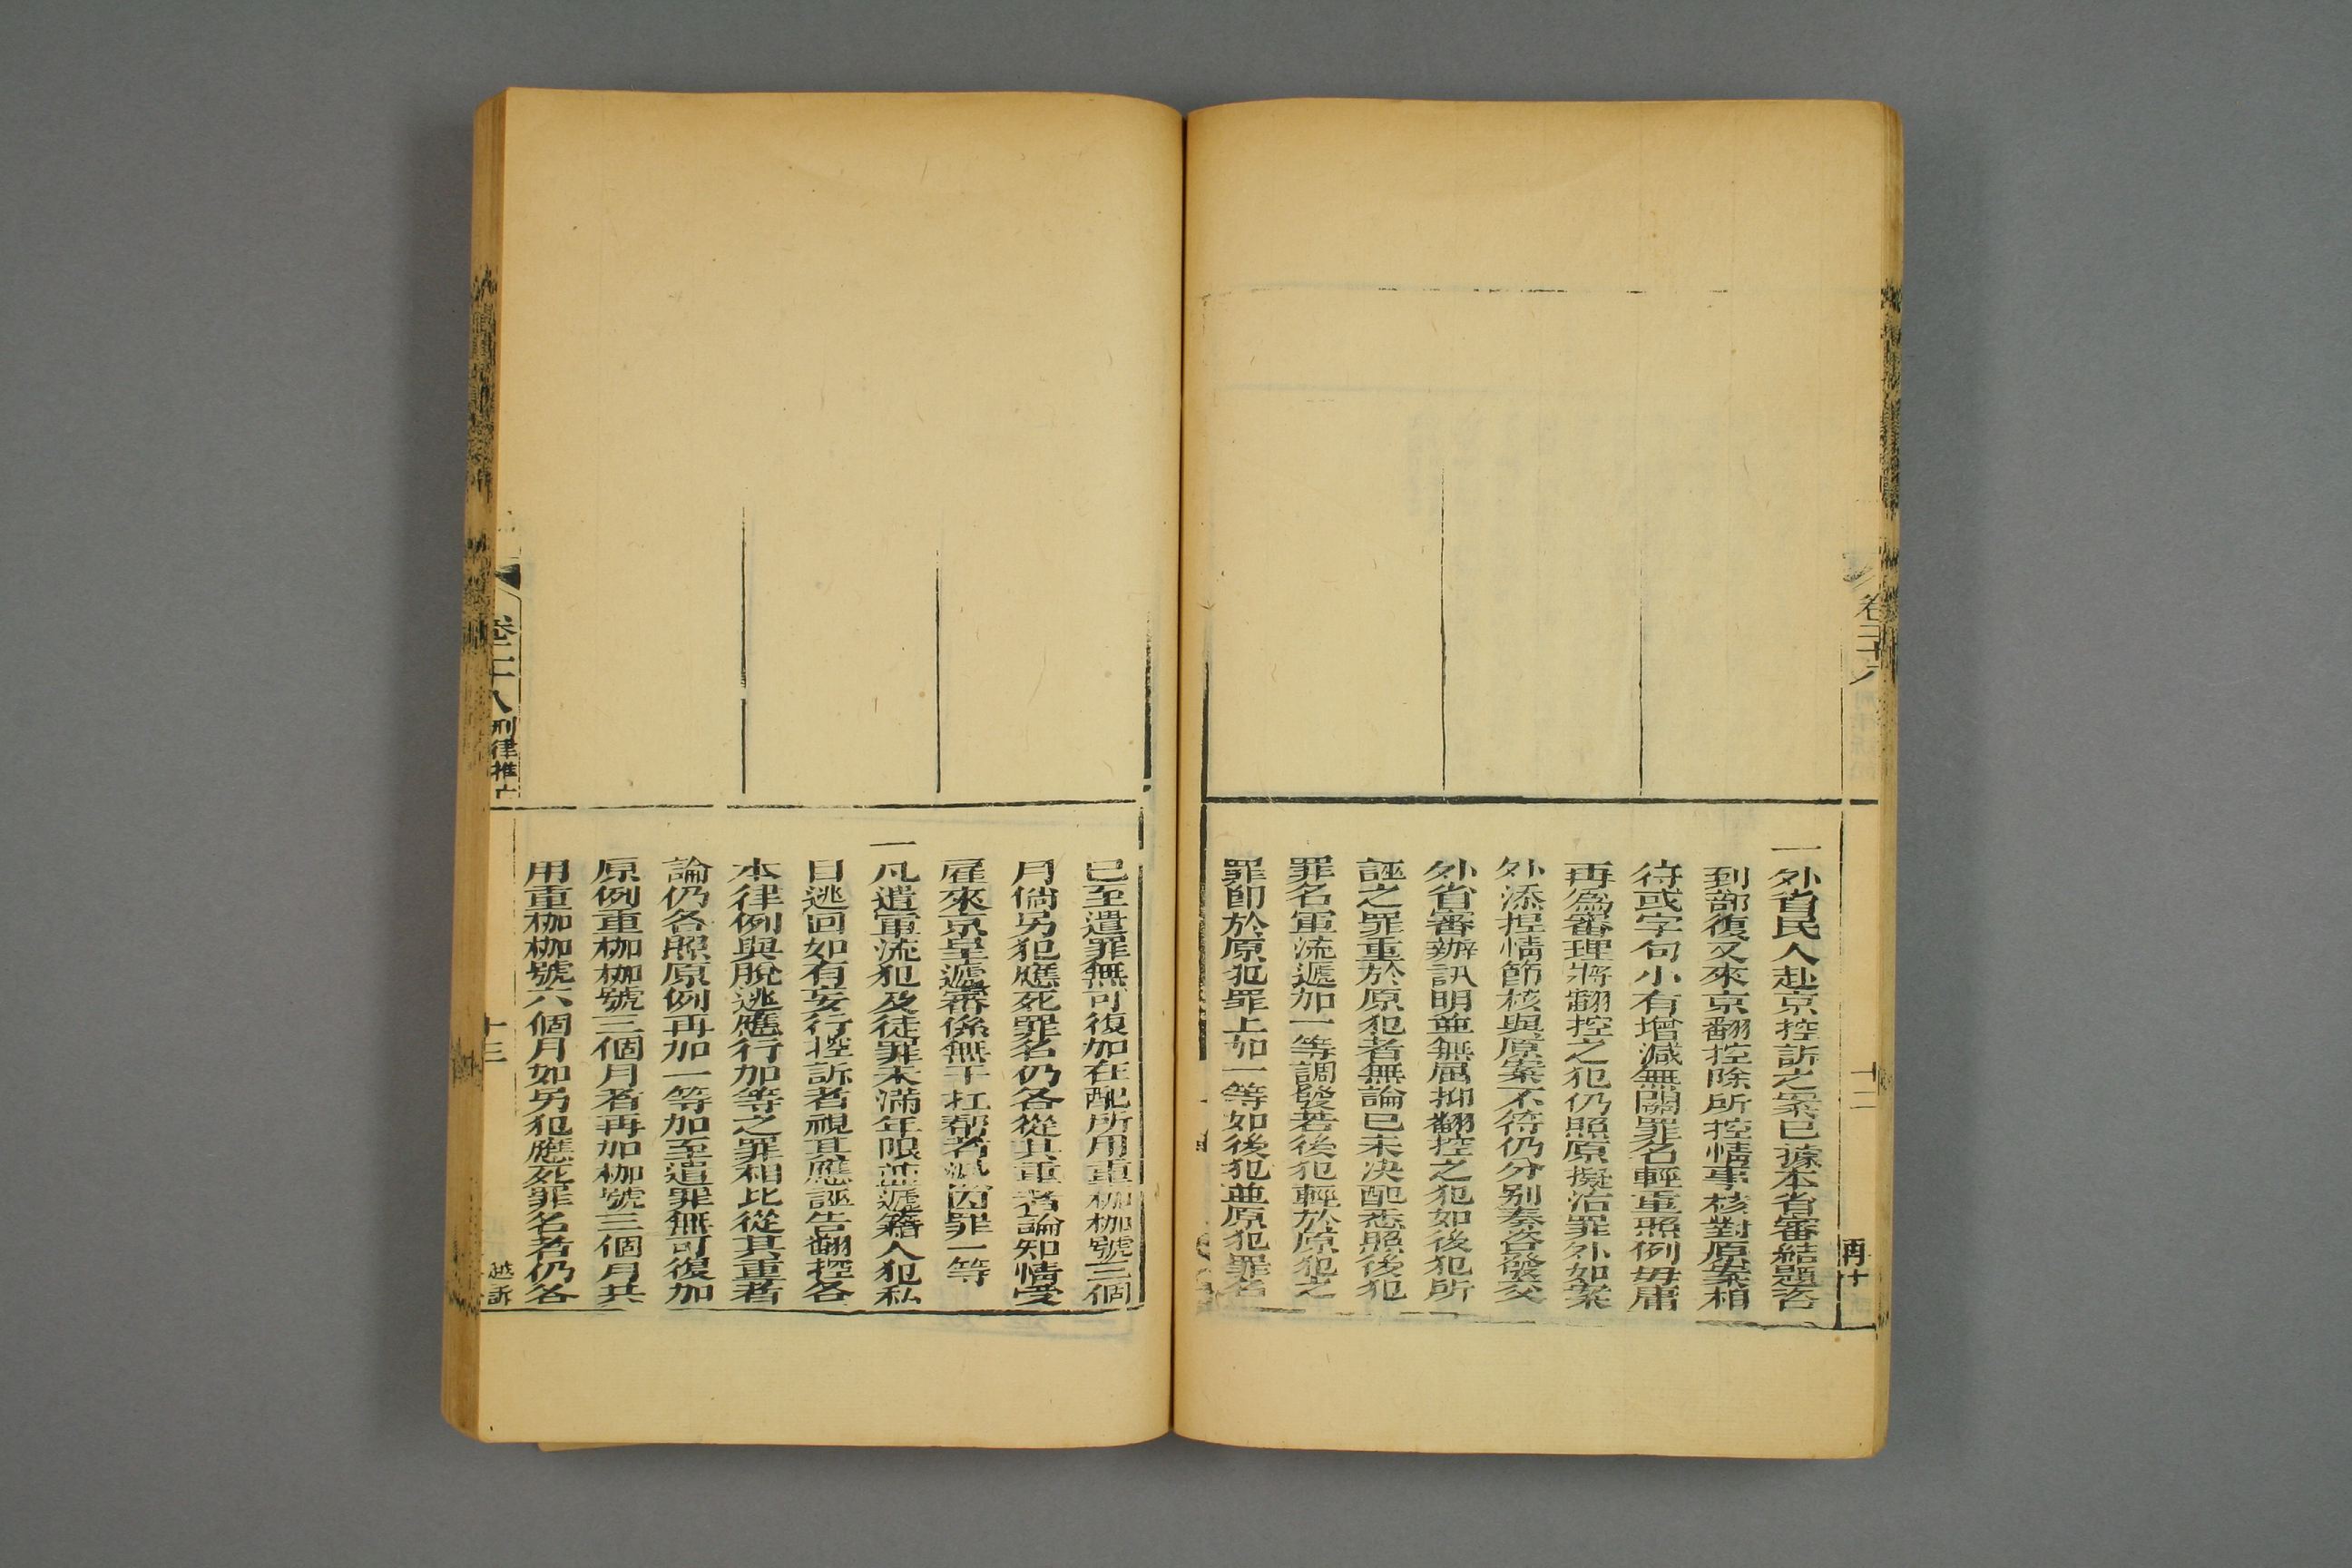 卷二十八
十二
再十
一外省民人赴京控訴之案已據本省審結題咨
到部復又來京翻控除所控情事核對原案相
符或字句小有增減無關罪名輕重照例毋庸
再爲審理將翻控之犯仍照原擬治罪外如案
外添捏情節核與原案不符仍分别奏咨發交
外省審辦訊明並無屈抑翻控之犯如後犯所
誣之罪重於原犯者無論已未决配悉照後犯
罪名軍流遞加一等調發若後犯輕於原犯之
罪卽於原犯罪上加一等如後犯並原犯罪名
已至遣罪無可復加在配所用重枷枷號三個
月倘另犯應死罪名仍各從其重者論知情受
雇來京呈遞審係無干扛帮者減囚罪一等
一凡遣軍流犯及徒罪未滿年限並遞籍人犯私
自逃回如有妄行控訴者視其應誣告翻控各
本律例與脫逃應行加等之罪相比從其重者
論仍各照原例再加一等加至遣罪無可復加
原例重枷枷號三個月者再加枷號三個月共
用重枷枷號六個月如另犯應死罪名者仍各
卷二十八
刑律推
十三
越訴